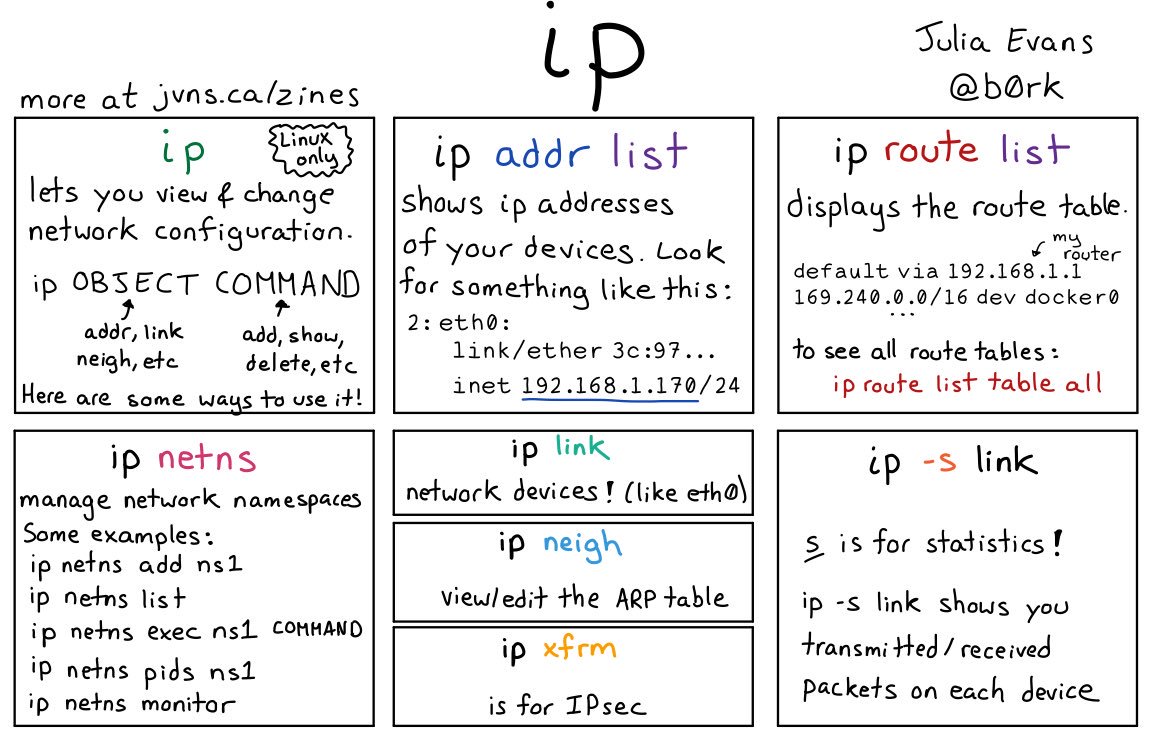 ip
Julia Evans
@b0rk
more at jvns.ca/zines
ip
Linux
only
lets you view & change
network configuration.
ip OBJECT COMMAND
addr, link
neigh, etc
add, show,
delete, etc
Here are some ways to use it!
ip addr list
shows ip addresses
of your devices. Look
for something like this:
2: eth0:
link/ether 3c:97...
inet 192.168.1.170/24
ip route list
displays the route table.
my
router
default via 192.168.1.1
169.240.0.0/16 dev docker0
...
to see all route tables:
ip route list table all
ip netns
manage network namespaces
Some examples:
ip netns add ns1
ip netns list
ip netns exec ns1 COMMAND
ip netns pids ns1
ip netns monitor
ip link
network devices! (like eth0)
ip neigh
view/edit the ARP table
ip xfrm
is for IPsec
ip -s link
s is for statistics!
ip -s link shows you
transmitted/received
packets on each device